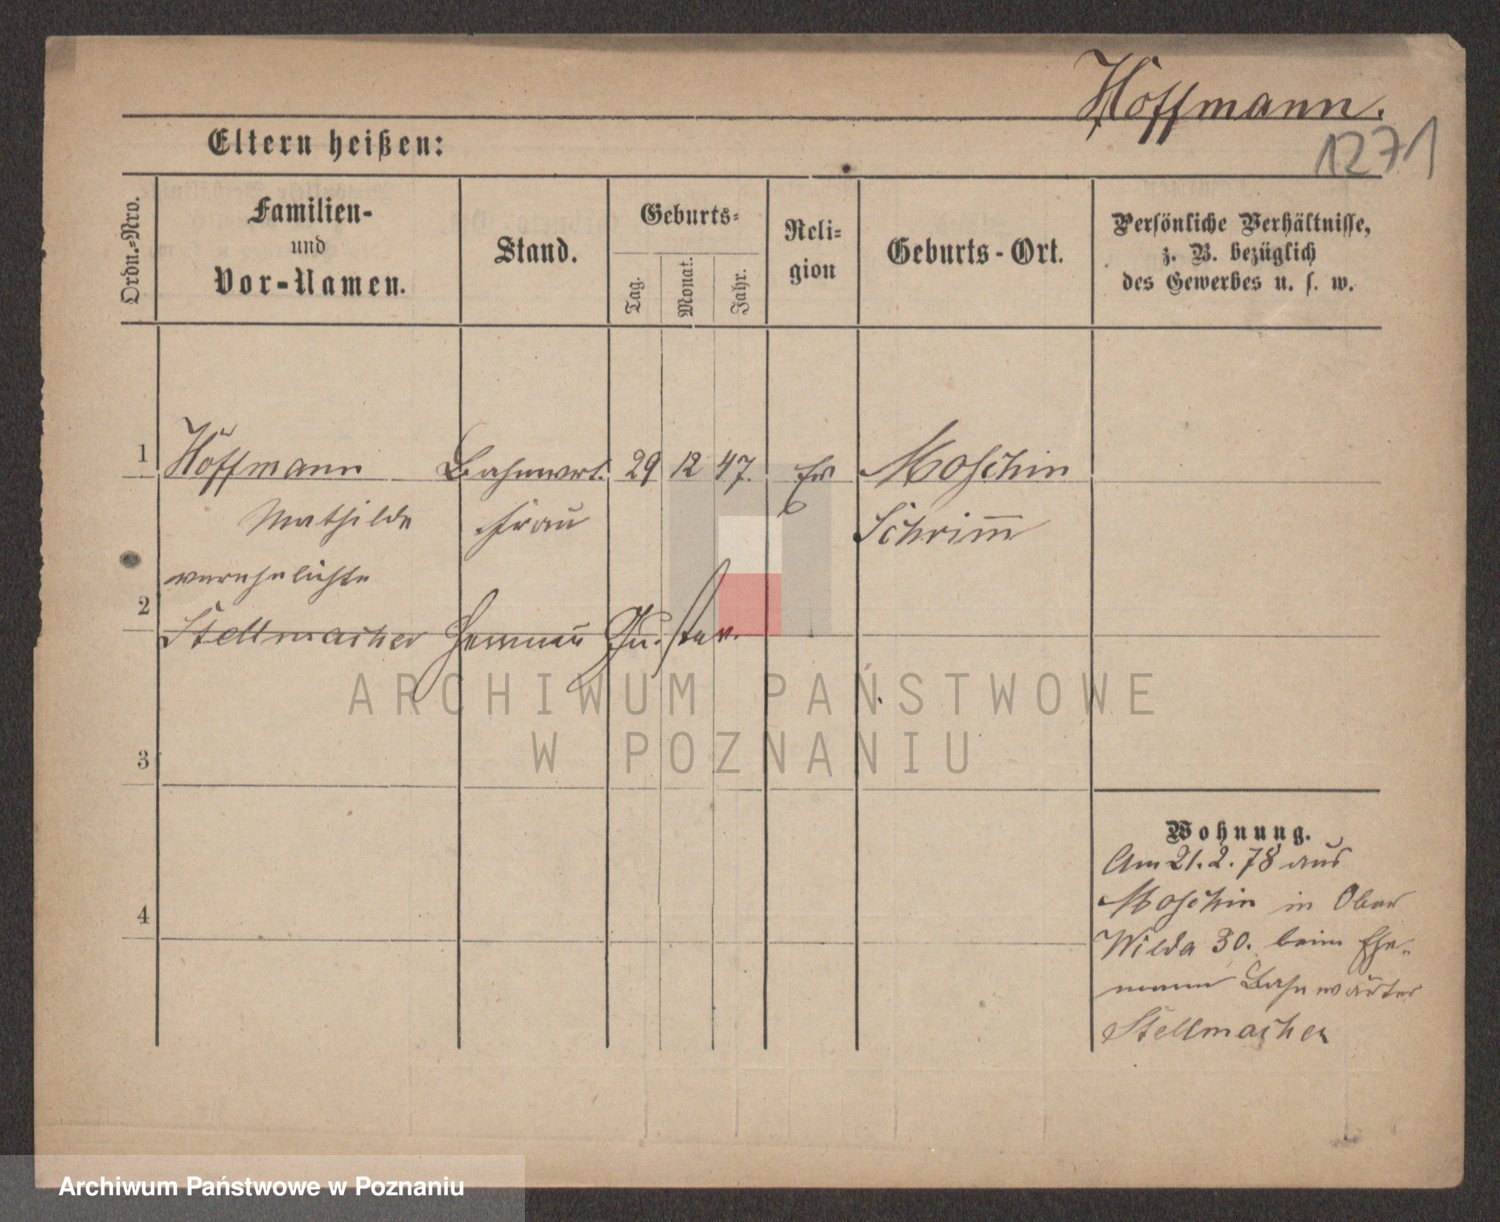 Hoffmann.
1271
Eltern heißen:
Ordn.-Nro.
Familien-
und
Vor-Namen.
Stand.
Geburts-
Tag.
Monat.
Jahr.
Reli-
gion
Geburts-Ort.
Persönliche Verhältnisse,
z. B. bezüglich
des Gewerbes u. s. w.
1 Hoffmann Bahnwrt. 29 12 47. Ev Moschin
Mathilde Frau Schrim̅
verehelichte
2
Stellmacher Herman Gustav.
ARCHIWUM PAŃSTWOWE
W POZNANIU
3
Wohnung.
Am 21.2.78 aus
4 Moschin in Ober
Wilda 30. beim Ehe-
mann Bahnwärter
Stellmacher
Archiwum Państwowe w Poznaniu